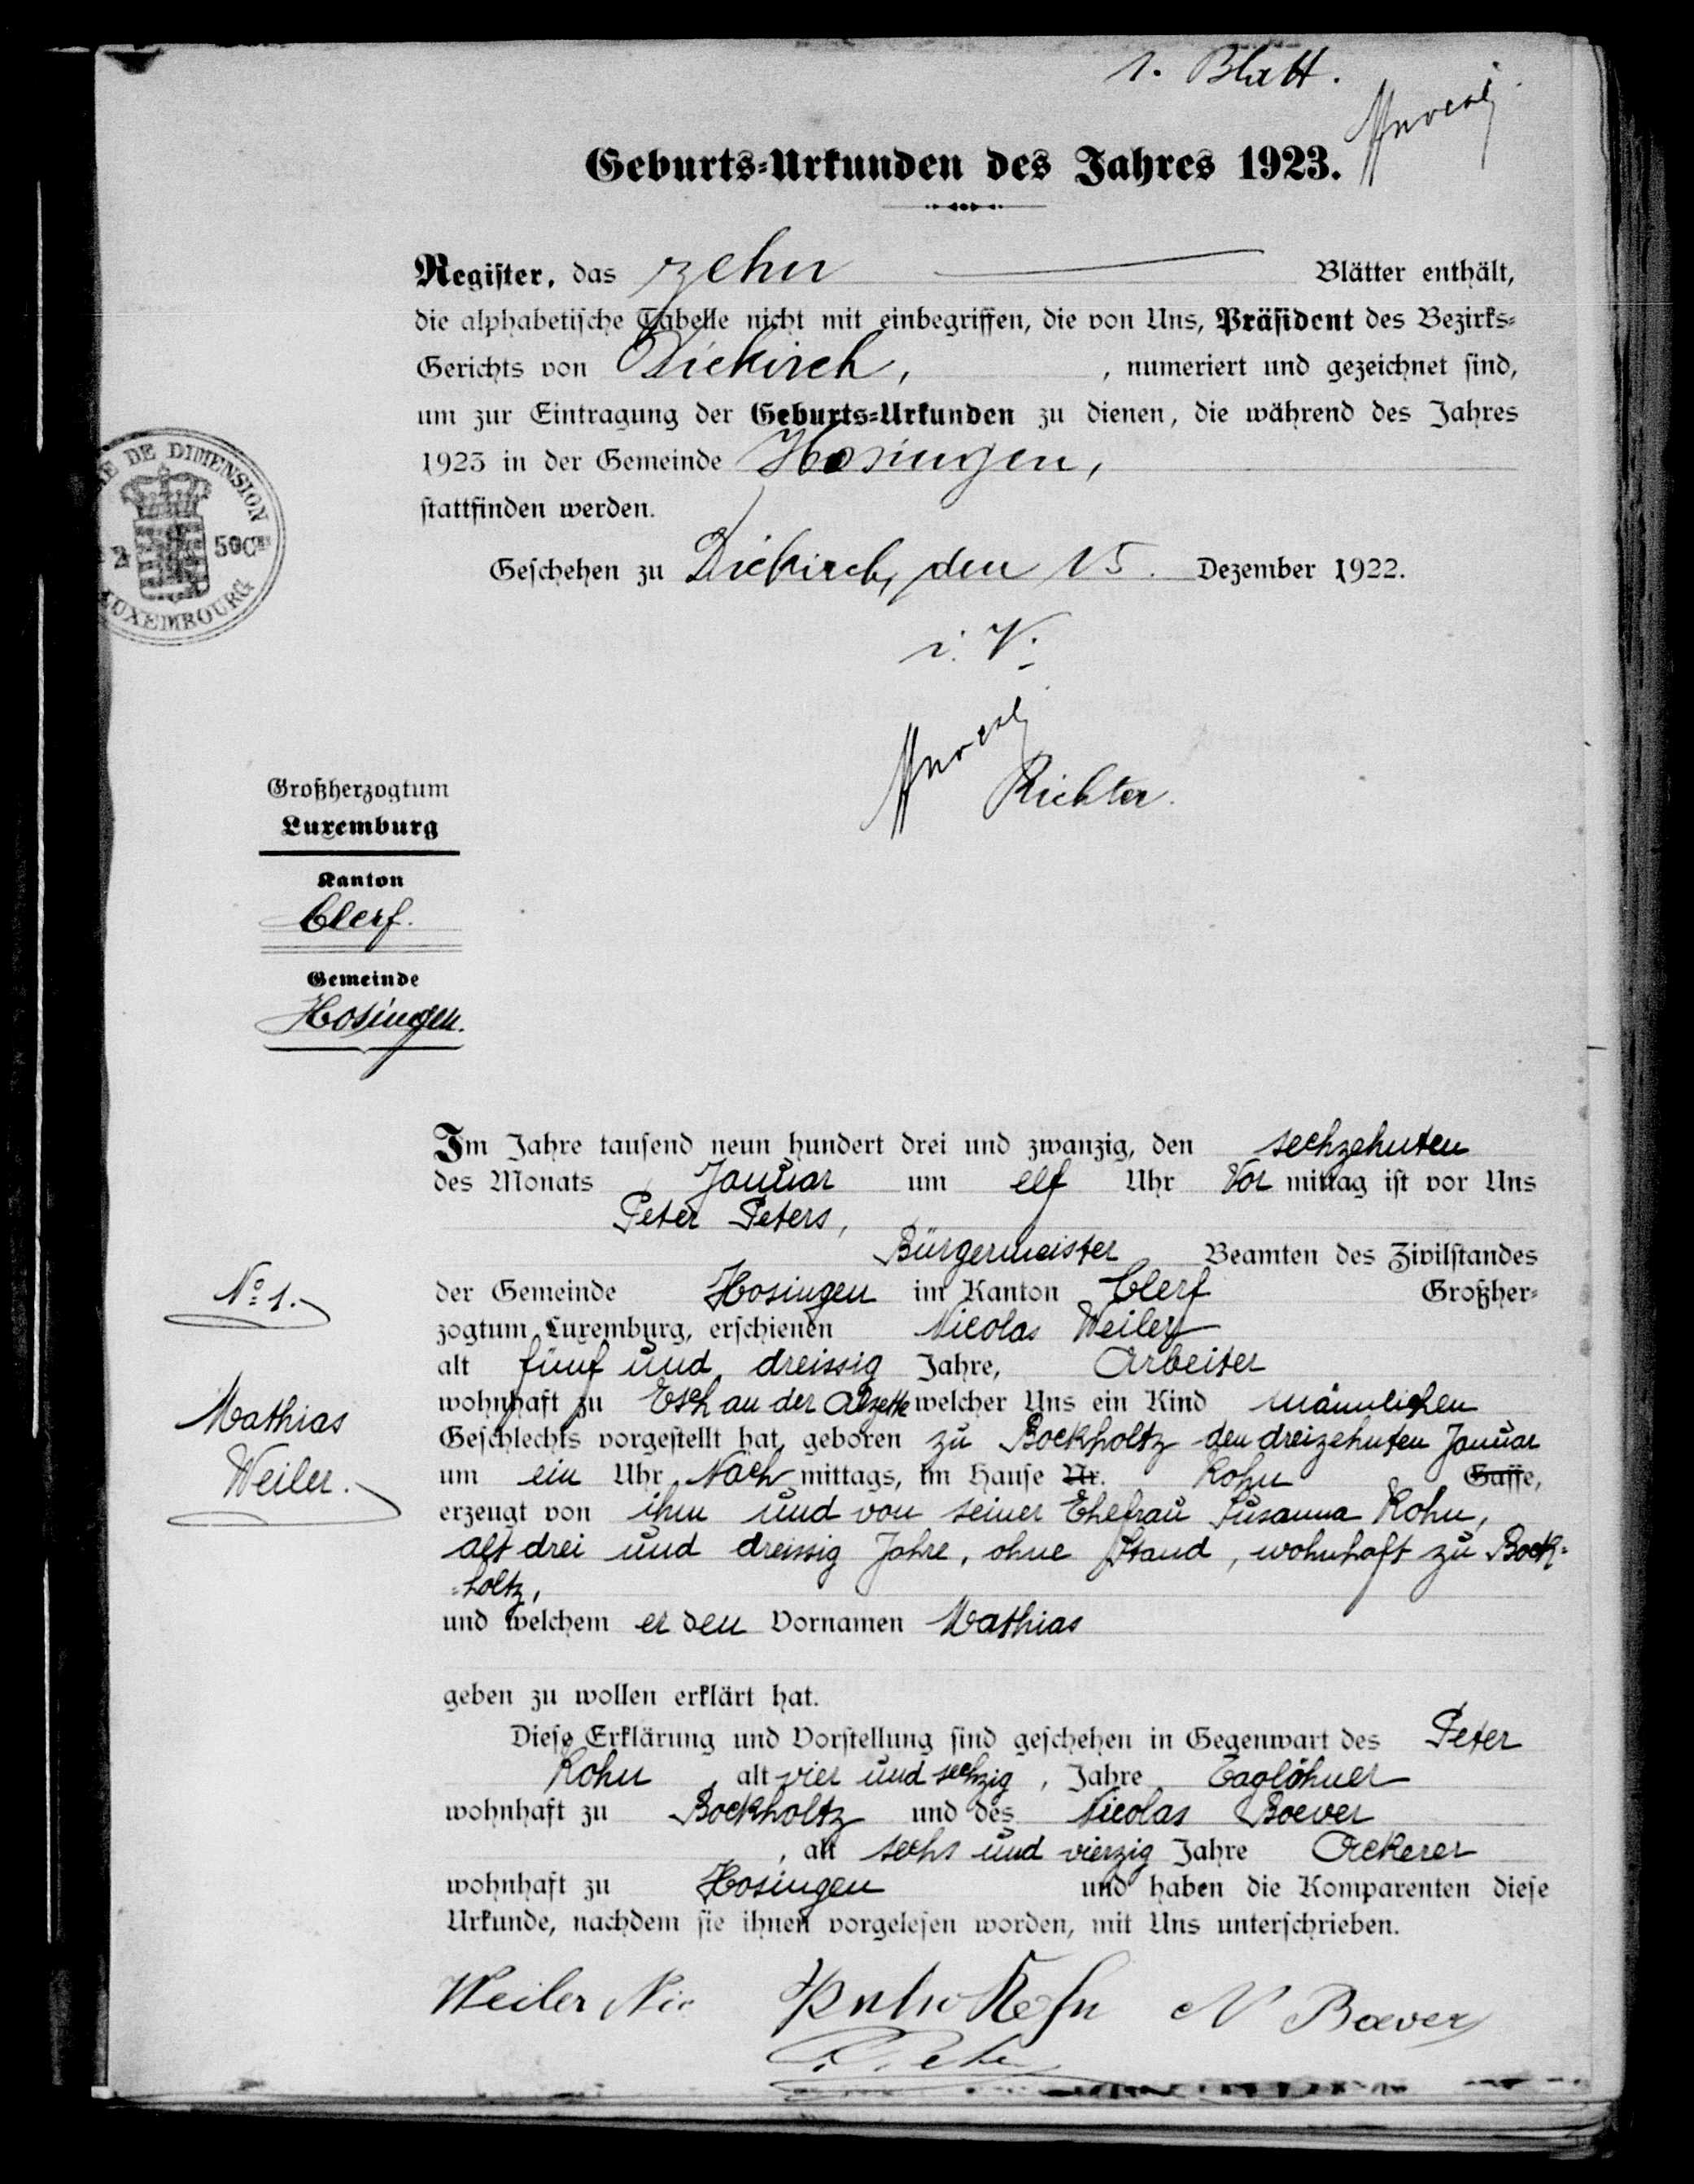 1. Blatt.
Geburts-Urkunden des Jahres 1923.
Register, das zehn Blätter enthält,
die alphabetische Tabelle nicht mit einbegriffen, die von Uns, Präsident des Bezirks-
Gerichts von Diekirch, , numeriert und gezeichnet sind,
um zur Eintragung der Geburts-Urkunden zu dienen, die während des Jahres
1923 in der Gemeinde Hosingen,
stattfinden werden.
DE DIMENSION
50Cmes
LUXEMBOURG
Geschehen zu Diekirch, den 15. Dezember 1922.
i. V.
Richter.
Großherzogtum
Luxemburg
Kanton
Clerf.
Gemeinde
Hosingen.
Im Jahre tausend neun hundert drei und zwanzig, den sechzehnten
des Monats Januar um elf Uhr Vor mittag ist vor Uns
Peter Peters,
Bürgermeister Beamten des Zivilstandes
No 1.
der Gemeinde Hosingen im Kanton Clerf Großher-
zogtum Luxemburg, erschienen Nicolas Weiler
alt fünf und dreissig Jahre, Arbeiter
Mathias
Weiler.
wohnhaft zu Esch an der Alzette welcher Uns ein Kind männlichen
Geschlechts vorgestellt hat, geboren zu Bockholtz den dreizehnten Januar
um ein Uhr Nach mittags, im Hause Nr. Kohn Gasse,
erzeugt von ihm und von seiner Ehefrau Susanna Kohn,
alt drei und dreissig Jahre, ohne Stand, wohnhaft zu Bock-
=holtz,
und welchem er den Vornamen Mathias
geben zu wollen erklärt hat.
Diese Erklärung und Vorstellung sind geschehen in Gegenwart des Peter
Kohn , alt vier und sechzig , Jahre Taglöhner
wohnhaft zu Bockholtz und des Nicolas Boever
, alt sechs und vierzig Jahre Ackerer
wohnhaft zu Hosingen und haben die Komparenten diese
Urkunde, nachdem sie ihnen vorgelesen worden, mit Uns unterschrieben.
Weiler Nic Kohn N Boever